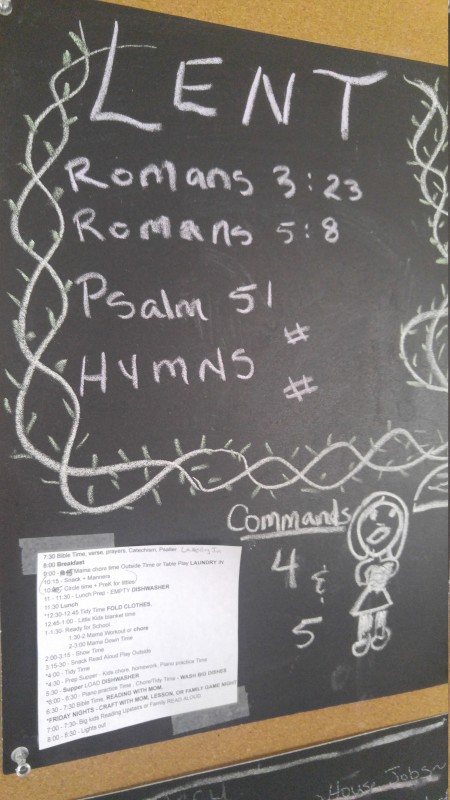 LENT
Romans 3:23
Romans 5:8
Psalm 51
HYMNS #
#
Commands
4 &
5
7:30 Bible Time, verse, prayers, Catechism, Poster
8:00 Breakfast
9:00 Mama chore time Outside Time or Table Play LAUNDRY
10:15 - Snack + Manners
Circle time + PreK for littles
11 - 11:30 - Lunch Prep - EMPTY DISHWASHER
11:30 Lunch
*12:30-12:45 Tidy Time FOLD CLOTHES.
12:45-1:00 - Little Kids blanket time
1-1:30- Ready for School
1:30-2 Mama Workout or chore
2-3:00 Mama Down Time
2:00-3:15 - Show Time
3:15-30 - Snack Read Aloud Play Outside
*4:00 - Tidy Time
4:30 - Prep Supper - Kids chore, homework, Piano practice Time
5:30 - Supper LOAD DISHWASHER
*6:00 - 6:30 - Piano practice Time - Chore/Tidy Time - WASH BIG DISHES
6:30 - 7:30 Bible Time, READING WITH MOM,
*FRIDAY NIGHTS - CRAFT WITH MOM, LESSON, OR FAMILY GAME NIGHT
7:00 - 7:30- Big kids Reading Upstairs or Family READ ALOUD
8:00 - 8:30 - Lights out
House Jobs~